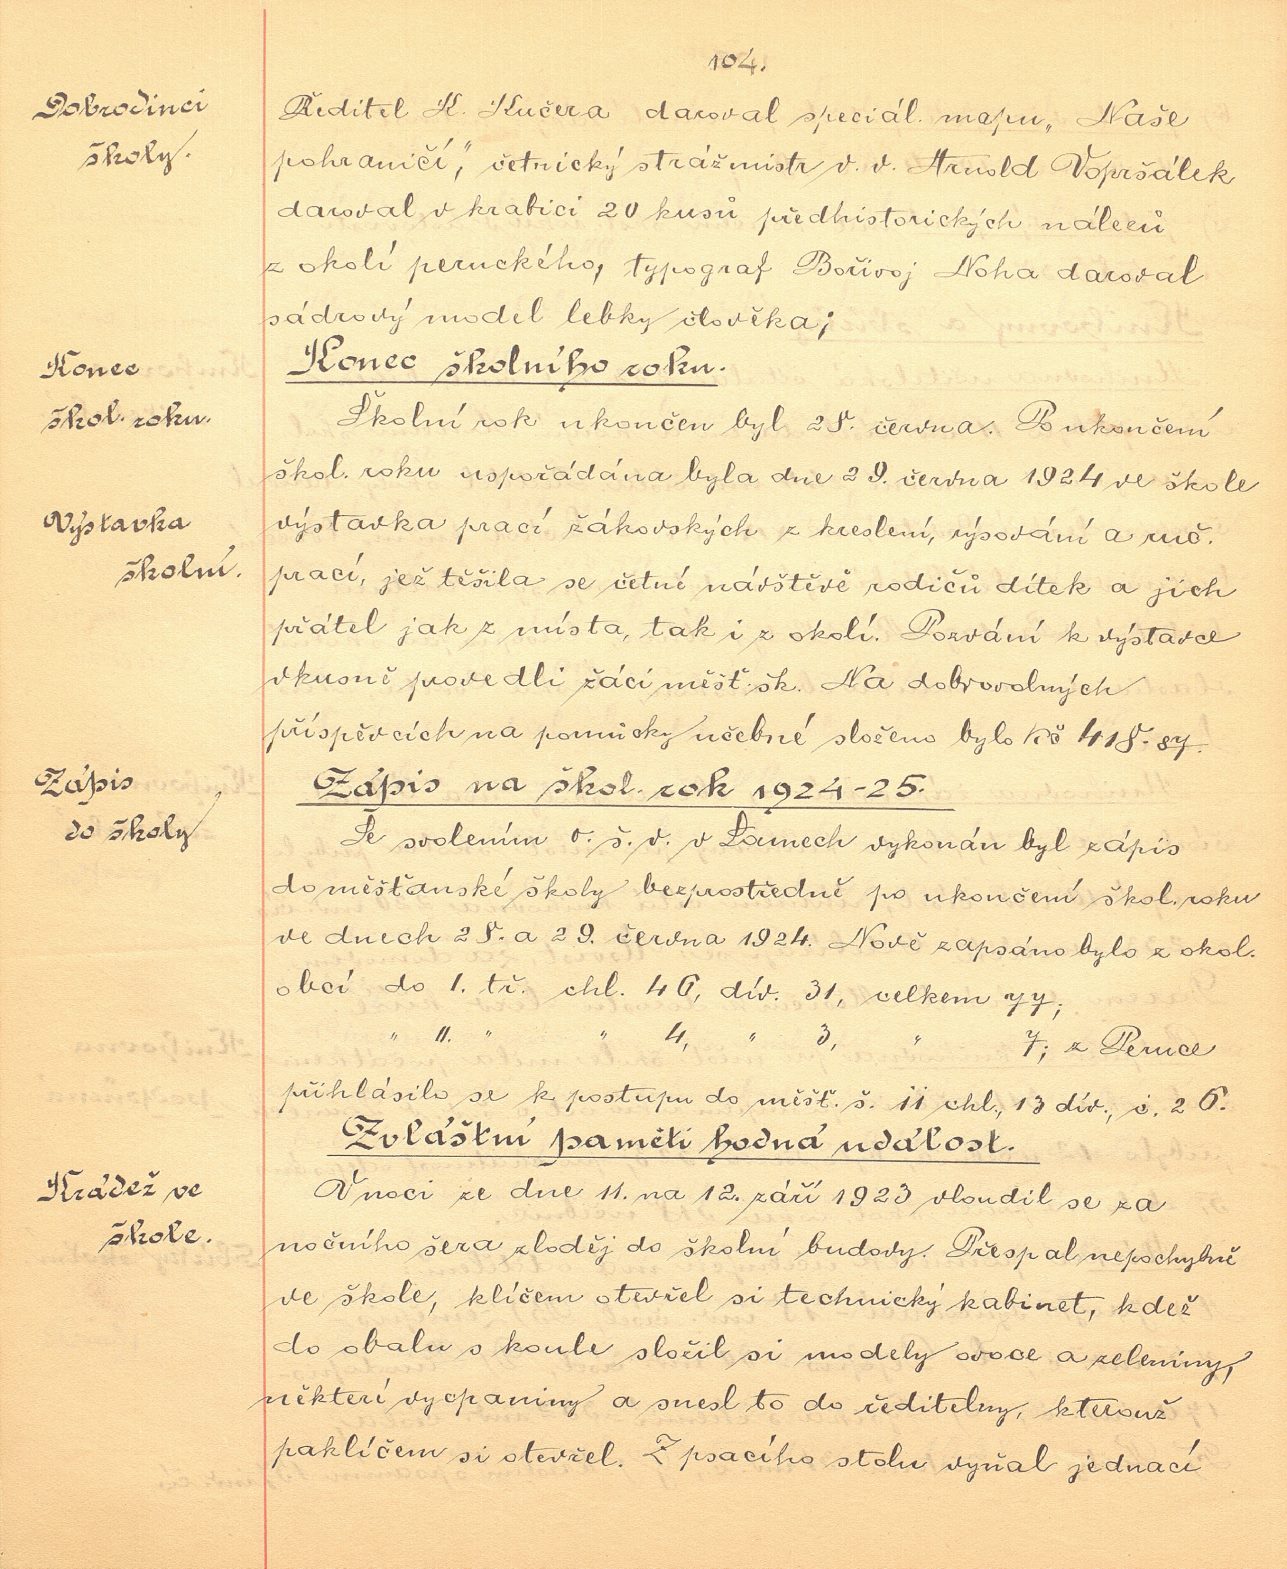 104.
Dobrodinci
školy.
Ředitel K. Kučera daroval speciál. mapu „Naše
pohraničí“, četnický strážmistr v. v. Arnold Vopršálek
daroval v krabici 20 kusů předhistorických nálezů
z okolí peruckého, typograf Bořivoj Noha daroval
sádrový model lebky člověka;
Konec
škol. roku.
Konec školního roku.
Školní rok ukončen byl 28. června. Po ukončení
škol. roku uspořádána byla dne 29. června 1924 ve škole
Výstavka
školní.
výstavka prací žákovských z kreslení, rýsování a ruč.
prací, jež těšila se četné návštěvě rodičů dítek a jich
přátel jak z místa, tak i z okolí. Pozvání k výstavce
vkusně provedli žáci měšť. šk. Na dobrovolných
příspěvcích na pomůcky učebné složeno bylo Kč 418.87.
Zápis
do školy
Zápis na škol. rok 1924-25.
Se svolením o. š. v. v Lounech vykonán byl zápis
do měšťanské školy bezprostředně po ukončení škol. roku
ve dnech 28. a 29. června 1924. Nově zapsáno bylo z okol.
obcí do 1. tř. chl. 46, dív. 31, celkem 77;
" II. " " 4, " 3, " 7; z Peruce
přihlásilo se k postupu do měšť. š. 11 chl., 13 dív., c. 26.
Zvláštní paměti hodná událost.
Krádež ve
škole.
V noci ze dne 11. na 12. září 1923 vloudil se za
nočního šera zloděj do školní budovy. Přespal nepochybně
ve škole, klíčem otevřel si technický kabinet, kdež
do obalu s koule složil si modely ovoce a zeleniny,
někteří vycpaniny a snesl to do ředitelny, kterouž
paklíčem si otevřel. Z psacího stolu vyňal jednací